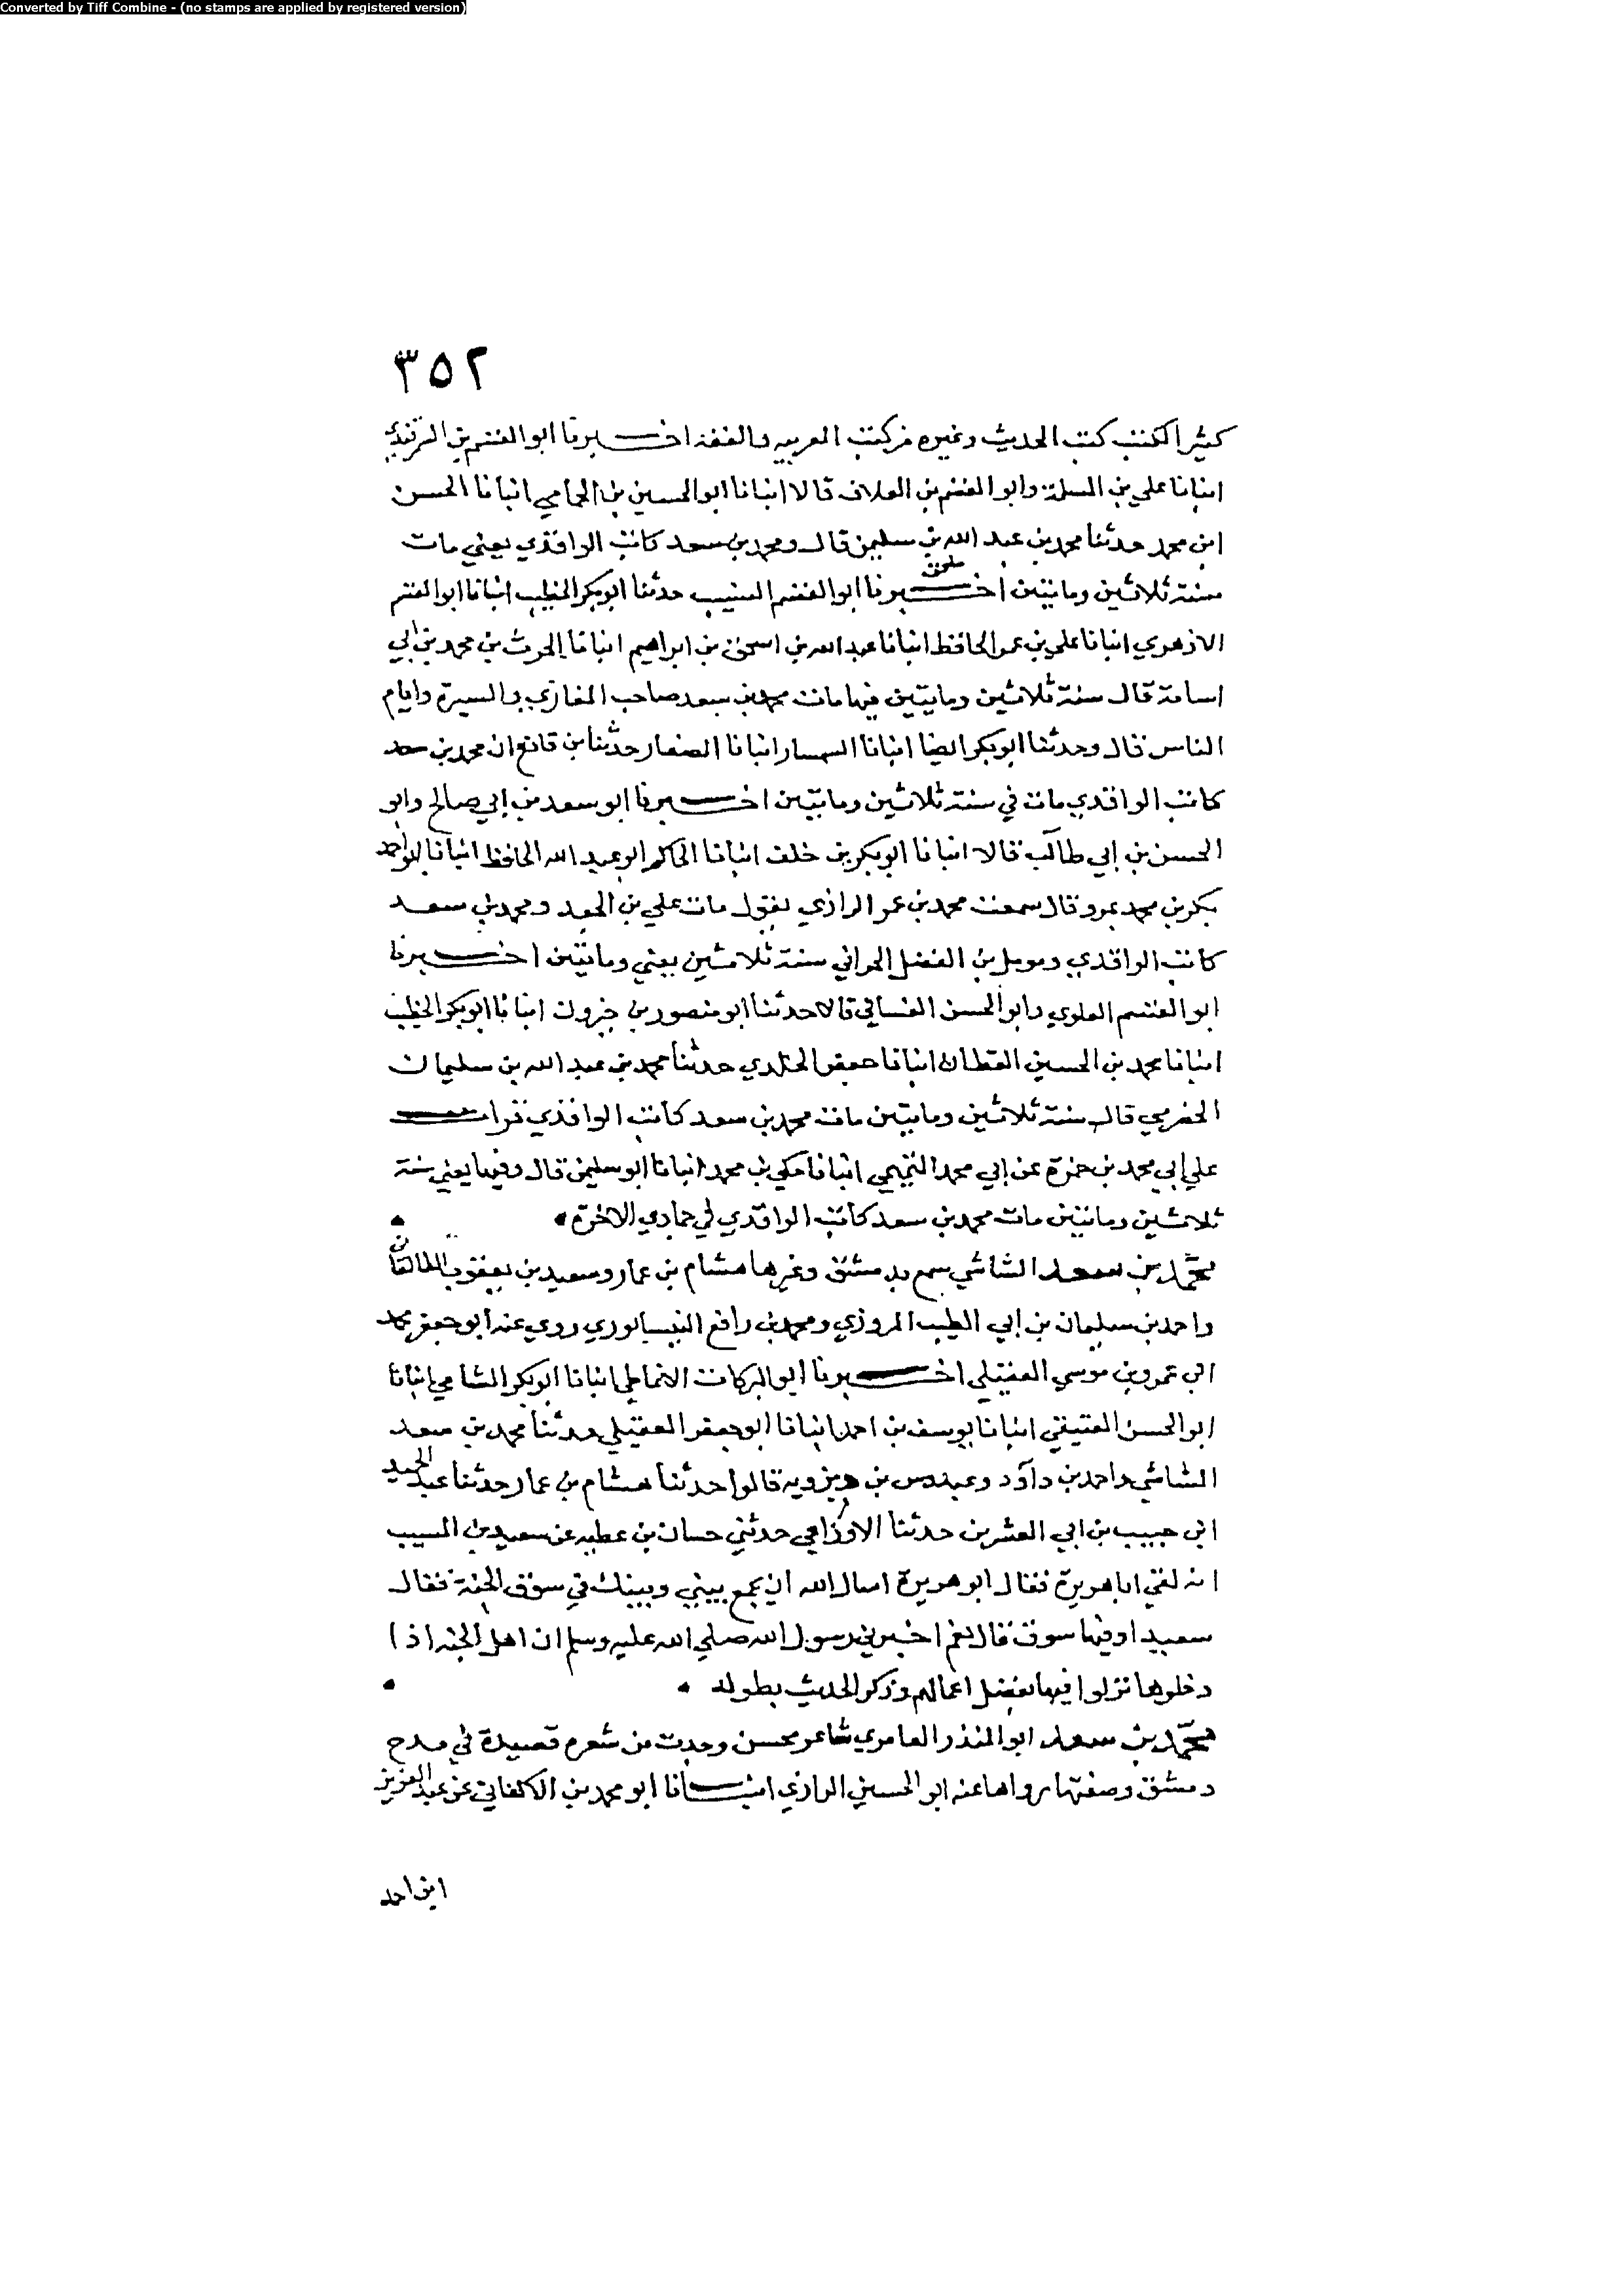 Converted by Tiff Combine - (no stamps are applied by registered version)
٣٥٢
كثير الكتب كتب الحديث وغيره من كتب العربيه والفقه اخبرنا ابو القسم بن السمرقندي
انبانا علي بن المسلمة وابو القسم بن العلاف قالا انبانا ابو الحسين بن الحمامي انبانا الحسن
ابن محمد حدثنا محمد بن عبد الله بن سليمن قال ومحمد بن سعد كاتب الواقدي يعني مات
سنة ثلاثين ومايتين اخبرنا ابو القسم النسيب حدثنا ابو بكر الخطيب انبانا ابو القسم
الازهري انبانا علي بن عمر الحافظ انبانا عبد الله بن اسحق بن ابراهيم انبانا الحرث بن محمد بن ابي
اسامة قال سنة ثلاثين ومايتين فيها مات محمد بن سعد صاحب المغازي والسيرة وايام
الناس قال وحدثنا ابو بكر ايضا انبانا السمسار انبانا الصفار حدثنا بن قانع ان محمد بن سعد
كاتب الواقدي مات في سنة ثلاثين ومايتين اخبرنا ابو سعد بن ابي صالح وابو
الحسن بن ابي طالب قالا انبانا ابو بكر بن خلف انبانا الحاكم ابو عبد الله الحافظ انبانا ابو احمد
بكر بن محمد بمرو قال سمعت محمد بن عمر الرازي يقول مات علي بن الجعد ومحمد بن سعد
كاتب الواقدي ومومل بن الفضل الحراني سنة ثلاثين يعني ومايتين اخبرنا
ابو القسم العلوي وابو الحسن الغساني قالا حدثنا ابو منصور بن خيرون انبانا ابو بكر الخطيب
انبانا محمد بن الحسين القطان انبانا جعفر الخلدي حدثنا محمد بن عبد الله بن سليمان
الحضرمي قال سنة ثلاثين ومايتين مات محمد بن سعد كاتب الواقدي قرات
علي ابي محمد بن حمزة عن ابي محمد التميمي انبانا مكي بن محمد انبانا ابو سليمن قال وفيها يعني سنة
ثلاثين ومايتين مات محمد بن سعد كاتب الواقدي في جمادي الاخرة
محمد بن سعد الشاشي سمع بدمشق وغيرها هشام بن عمار وسعيد بن يعقوب الطالقاني
واحمد بن سليمان بن ابي الطيب المروزي ومحمد بن رافع النيسابوري روي عنه ابو جعفر محمد
ابن عمرو بن موسي العقيلي اخبرنا ابو البركات الانماطي انبانا ابو بكر الشامي انبانا
ابو الحسن العتيقي انبانا يوسف بن احمد انبانا ابو جعفر العقيلي حدثنا محمد بن سعد
الشاشي واحمد بن داود وعبدوس بن ديزويه قالوا حدثنا هشام بن عمار حدثنا عبد الحميد
ابن حبيب بن ابي العشرين حدثنا الاوزاعي حدثني حسان بن عطيه عن سعيد بن المسيب
انه لقي ابا هريرة فقال ابو هريرة اسال الله ان يجمع بيني وبينك في سوق الجنة فقال
سعيد اوفيها سوق قال نعم اخبرني رسول الله صلي الله عليه وسلم ان اهل الجنه اذا
دخلوها نزلوا فيها بفضل اعمالهم وذكر الحديث بطوله
محمد بن سعد ابو المنذر العامري شاعر محسن وجدت من شعره قصيدة في مدح
دمشق وصفتها رواها عنه ابو الحسين الرازي انبانا ابو محمد بن الاكفاني عن عبد العزيز
ابن احمد